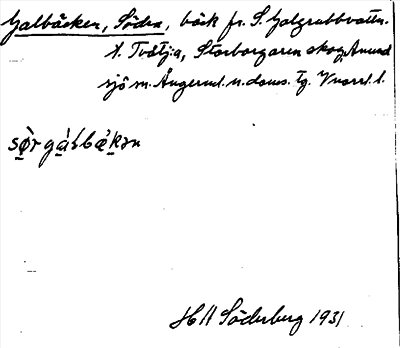 Galbäcken, Södra, bäck fr. S. Galgrubbvattn.
t. Tvätj:a, Storborgaren skog, Anund
sjö m. Ångerml. n. doms. tg. Vnorrl. l.
sø̀r gálbækən
H Söderberg 1931